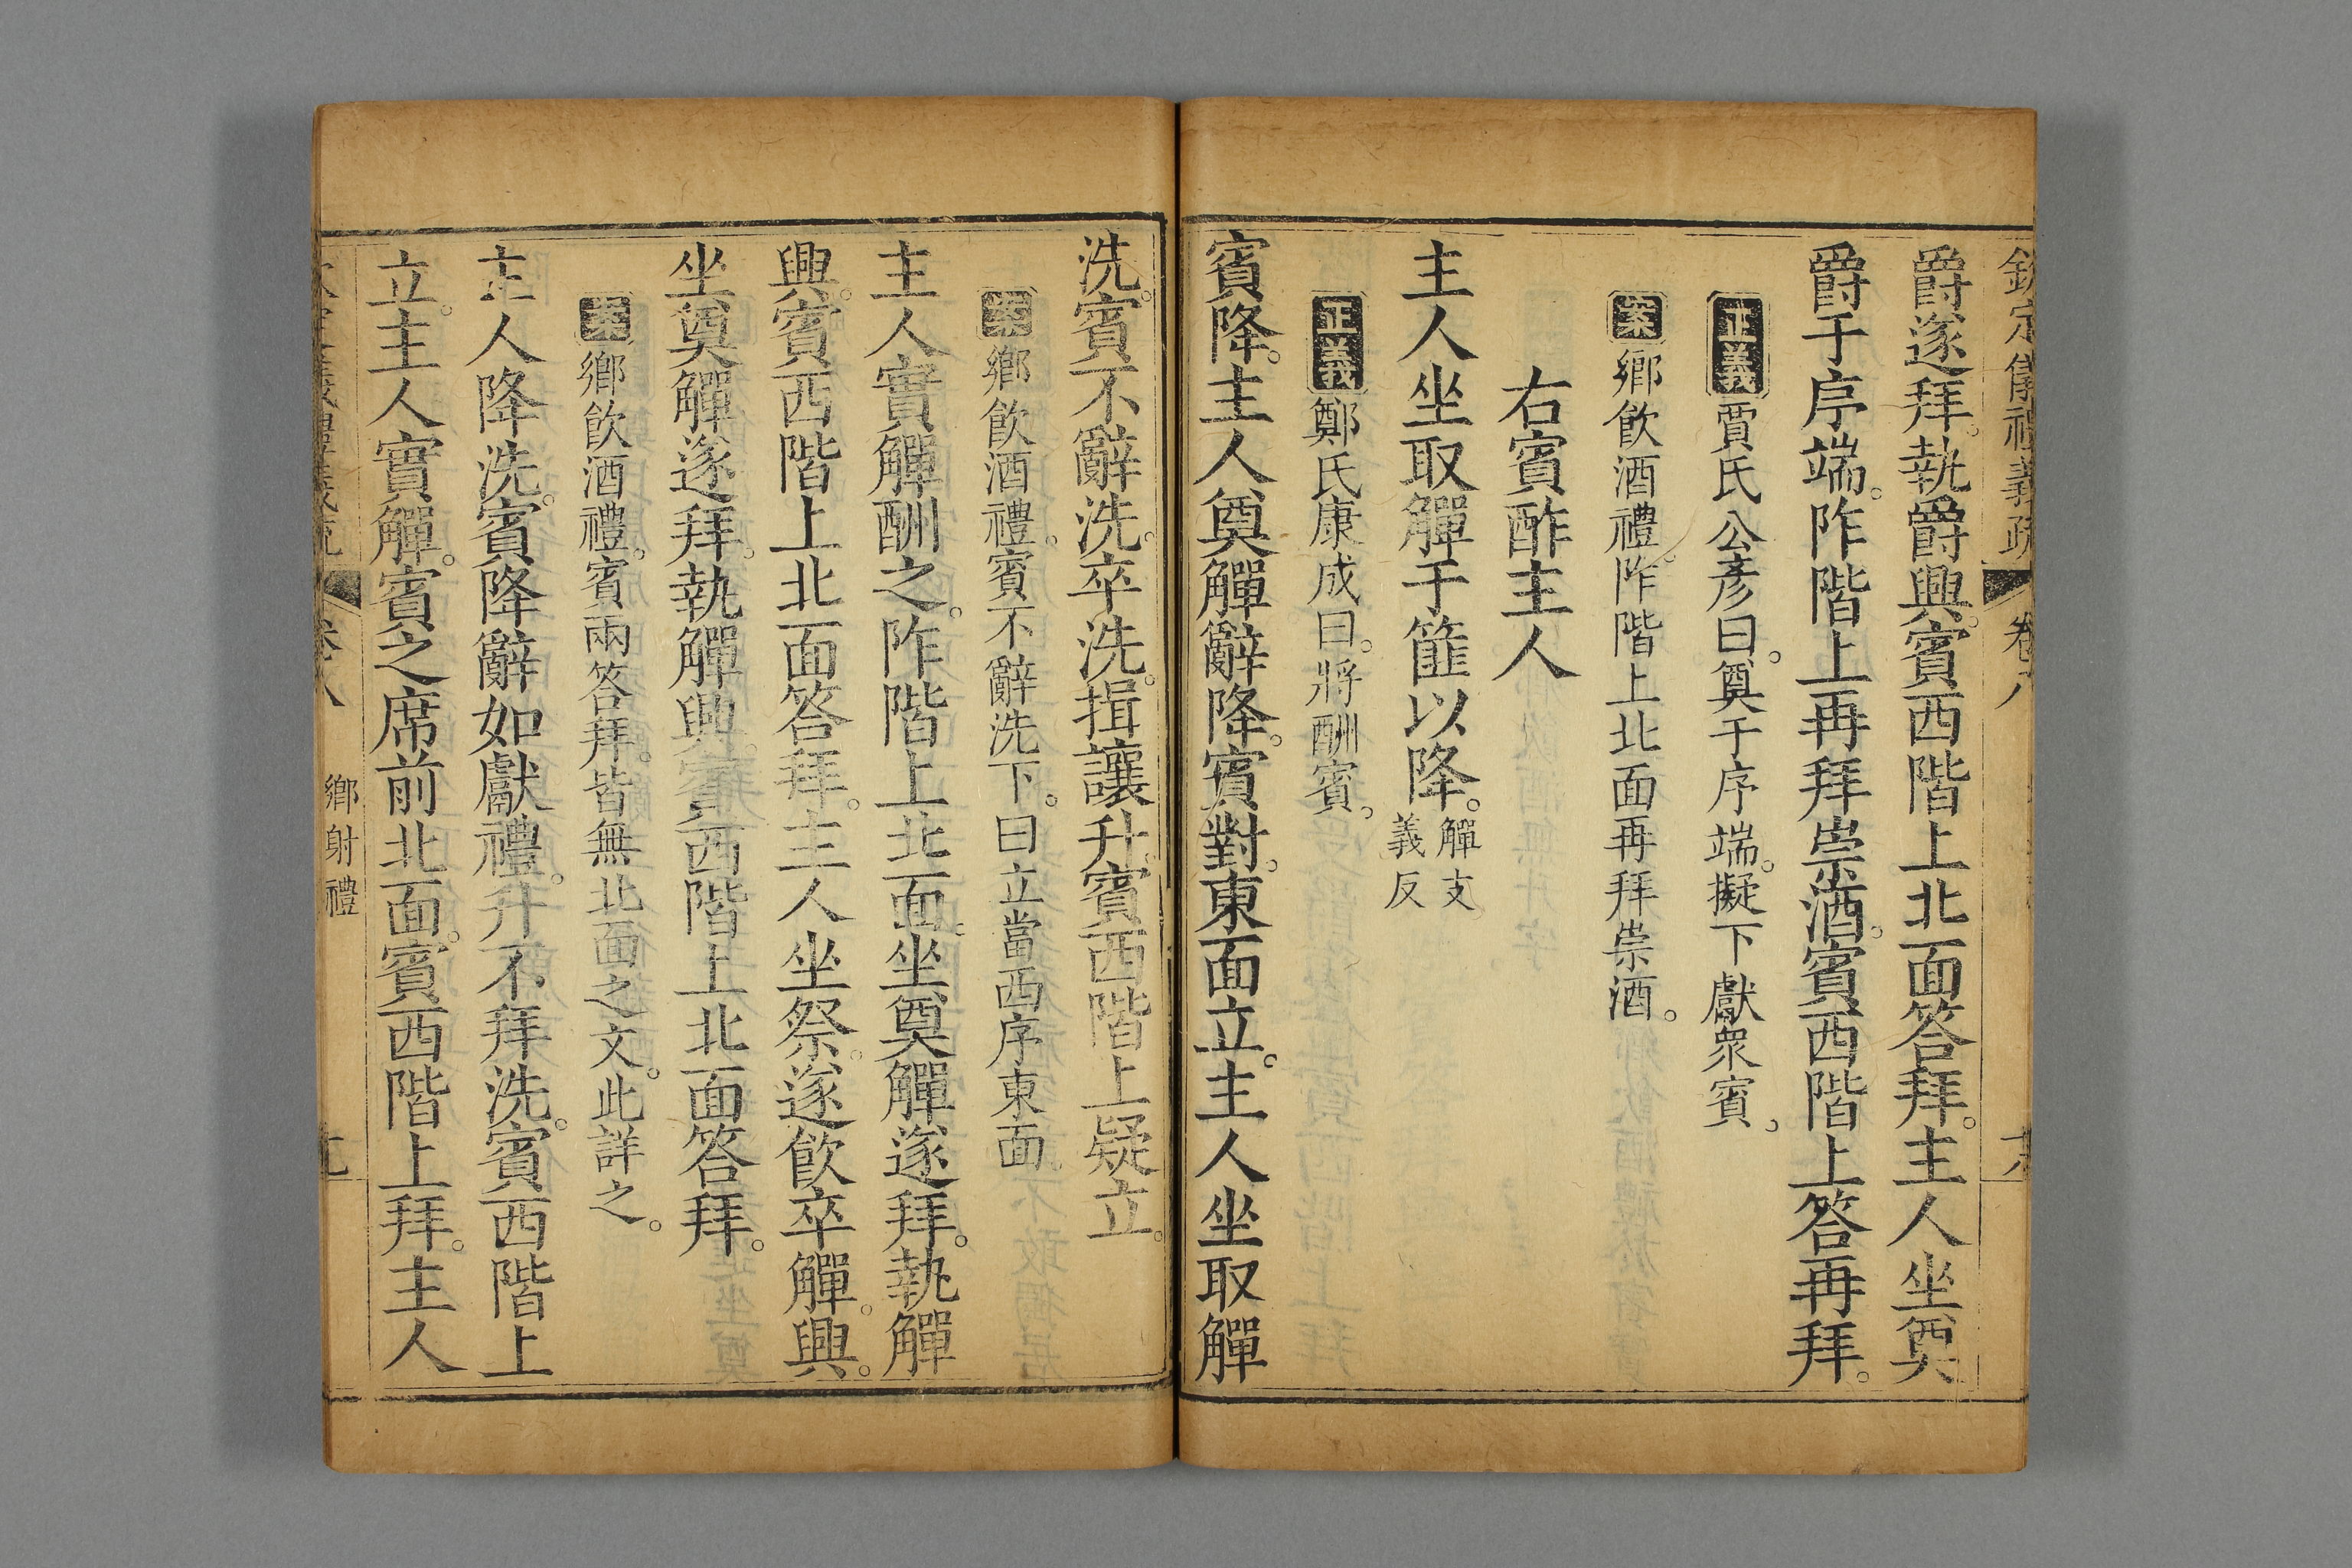 欽定儀禮義疏 卷八
爵遂拜。執爵興。賓西階上北面答拜。主人坐奠
爵于序端。阼階上再拜崇酒。賓西階上答再拜。
正義 賈氏公彥曰。奠于序端。擬下獻衆賓。
案 鄉飲酒禮。阼階上北面再拜崇酒。
右賓酢主人
主人坐取觶于篚以降。觶支義反
正義 鄭氏康成曰。將酬賓。
賓降。主人奠觶辭降。賓對。東面立。主人坐取觶
洗。賓不辭洗。卒洗。揖讓升。賓西階上疑立。
案 鄉飲酒禮。賓不辭洗下。曰立當西序東面。
主人實觶酬之。阼階上北面。坐奠觶遂拜。執觶
興。賓西階上北面答拜。主人坐祭。遂飲卒觶。興。
坐奠觶遂拜。執觶興。賓西階上北面答拜。
案 鄉飲酒禮。賓兩答拜。皆無北面之文。此詳之。
主人降洗。賓降辭如獻禮。升不拜洗。賓西階上
立。主人實觶。賓之席前北面。賓西階上拜。主人
卷八 鄉射禮